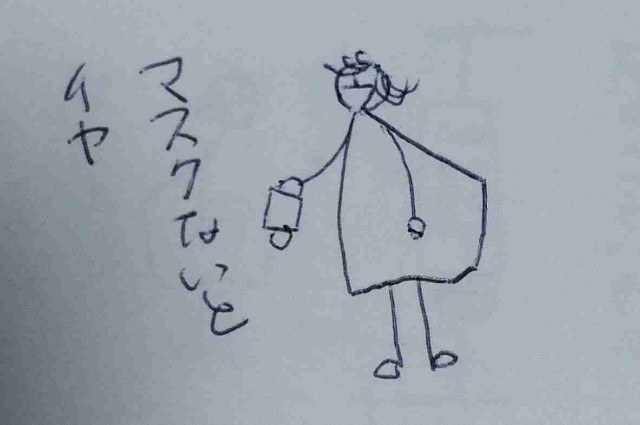 マスクないと
イヤ